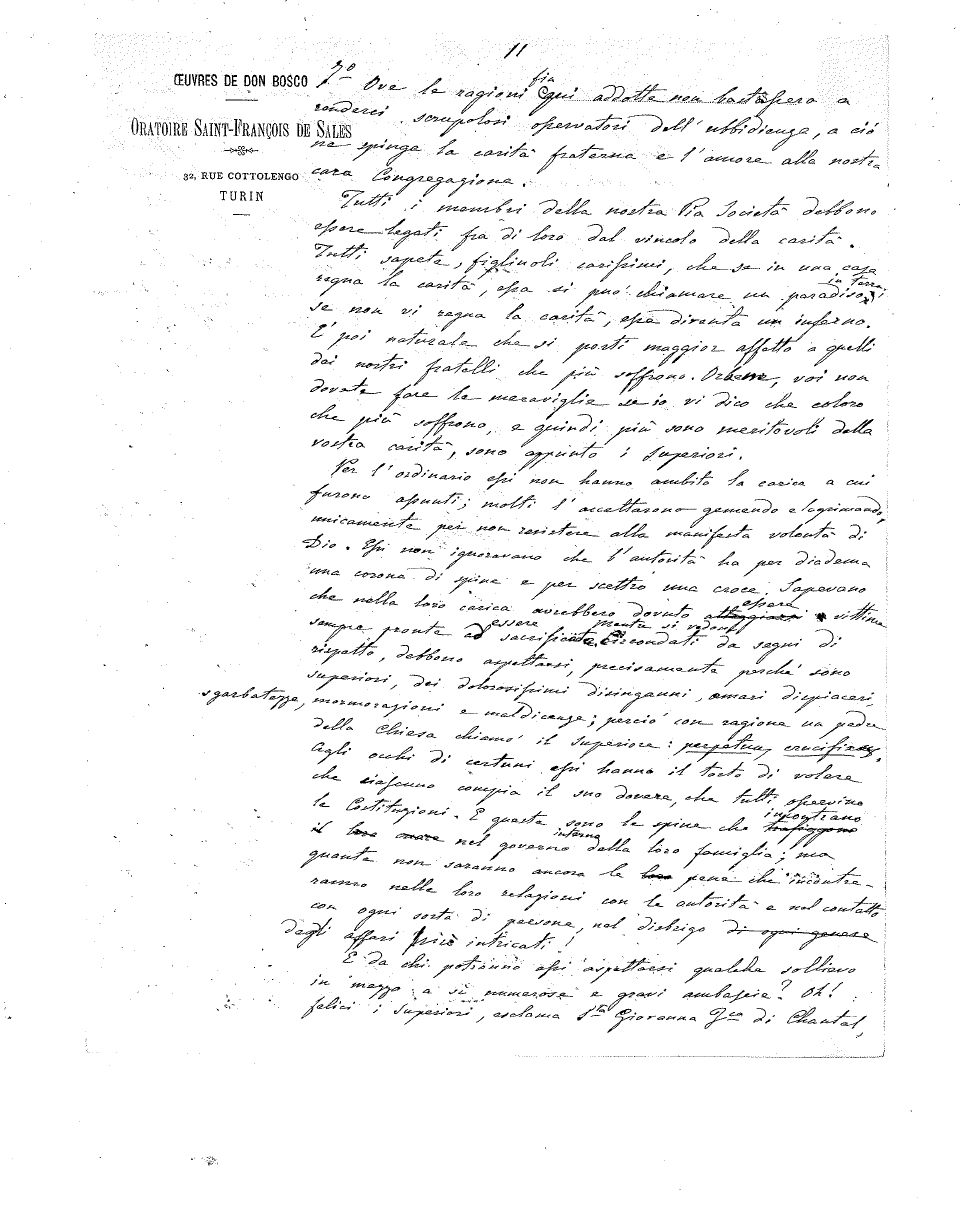 11
ŒUVRES DE DON BOSCO
ORATOIRE SAINT-FRANÇOIS DE SALES
32, RUE COTTOLENGO
TURIN
7º Ove le ragioni fin qui addotte non bastassero a
renderci scrupolosi osservatori dell'ubbidienza, a ciò
ne spinga la carità fraterna e l'amore alla nostra
cara Congregazione.
Tutti i membri della nostra Pia Società debbono
essere legati fra di loro dal vincolo della carità.
Tutti sapete, figliuoli carissimi, che se in una casa
regna la carità, essa si può chiamare un paradiso in terra;
se non vi regna la carità, essa diventa un inferno.
E' poi naturale che si porti maggior affetto a quelli
dei nostri fratelli che più soffrono. Orbene, voi non
dovete fare le meraviglie se io vi dico che coloro
che più soffrono, e quindi più sono meritevoli della
vostra carità, sono appunto i Superiori.
Per l'ordinario essi non hanno ambito la carica a cui
furono assunti; molti l'accettarono gemendo e lagrimando,
unicamente per non resistere alla manifesta volontà di
Dio. Essi non ignoravano che l'autorità ha per diadema
una corona di spine e per scettro una croce. Sapevano
che nella loro carica avrebbero dovuto atteggiarsi essere vittime
sempre pronte ad essere sacrificate. Mentre si vedono circondati da segni di
rispetto, debbono aspettarsi, precisamente perchè sono
superiori, dei dolorosissimi disinganni, amari dispiaceri,
sgarbatezze, mormorazioni e maldicenze; perciò con ragione un padre
della Chiesa chiamò il superiore: perpetuus crucifixus.
Agli occhi di certuni essi hanno il torto di volere
che ciascuno compia il suo dovere, che tutti osservino
le Costituzioni. E queste sono le spine che trafiggono incontrano
il loro cuore nel governo interno della loro famiglia; ma
quante non saranno ancora le loro pene che incontre-
ranno nelle loro relazioni con le autorità e nel contatto
con ogni sorta di persone, nel disbrigo di ogni genere
degli affari più intricati!
E da chi potranno essi aspettarsi qualche sollievo
in mezzo a sì numerose e gravi ambascie? Oh!
felici i Superiori, esclama Sta Giovanna Fca di Chantal,